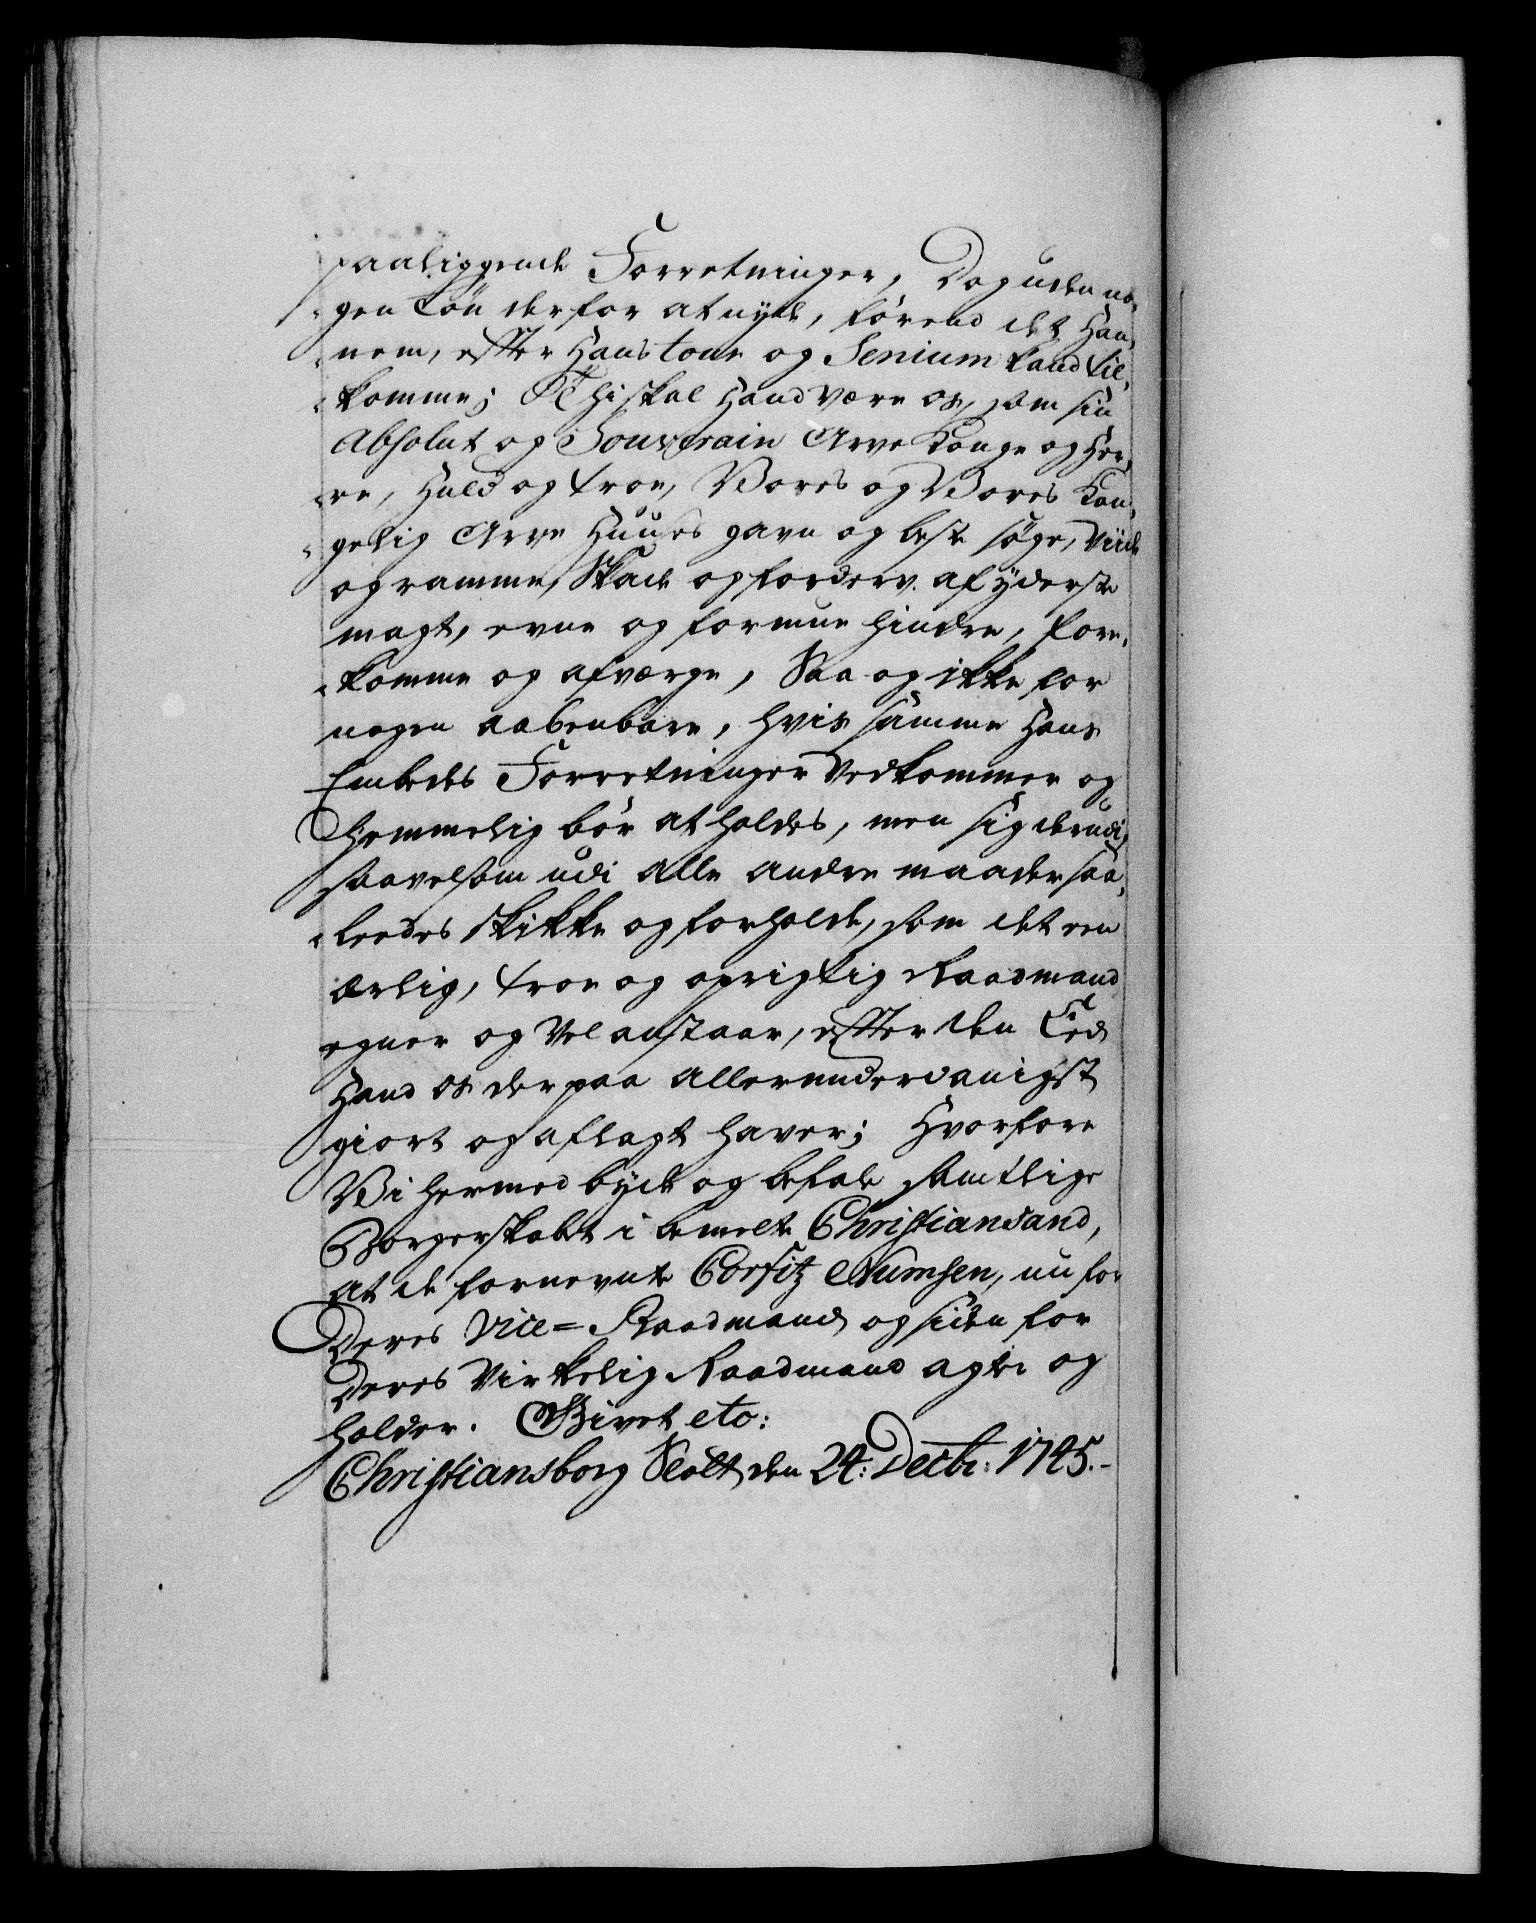 paaliggende Forretninger, Dog uden no-
gen Løn derfor at nyde, førend det Han-
nem, efter Hans tour og Senium kand til-
komme; Thi skal Hand være os, som sin
Absolut og Souverain Arve Konge og Her-
re, Huld og troe, Vores og Vores Kon-
gelig Arve Huuses gavn og beste søge, viide
og ramme, Skade og forderv. af yderste
magt, evne og formue hindre, fore-
komme og afværge, Saa og ikke for
nogen aabenbare, hvis samme Hans
Embedes Forretninger Vedkommer og
Hemmelig bør at holdes, men sig derudi,
saavelsom udi alle andre maader saa-
leedes skikke og forholde, som det een
ærlig, troe og oprigtig Raadmand
egner og Vel anstaar, efter den Eed
Hand os derpaa allerunderdanigst
giort og aflagt haver; Hvorfore
Vi hermed byde og befale samtlige
Borgerskabet i bemelte Christiansand,
at de fornevnte Corfitz Numsen, nu for
Deres Vice= Raadmand og siden for
Deres Virkelig Raadmand agte og
holder. Givet etc:
Christiansborg Slott den 24: Decbr: 1745.-